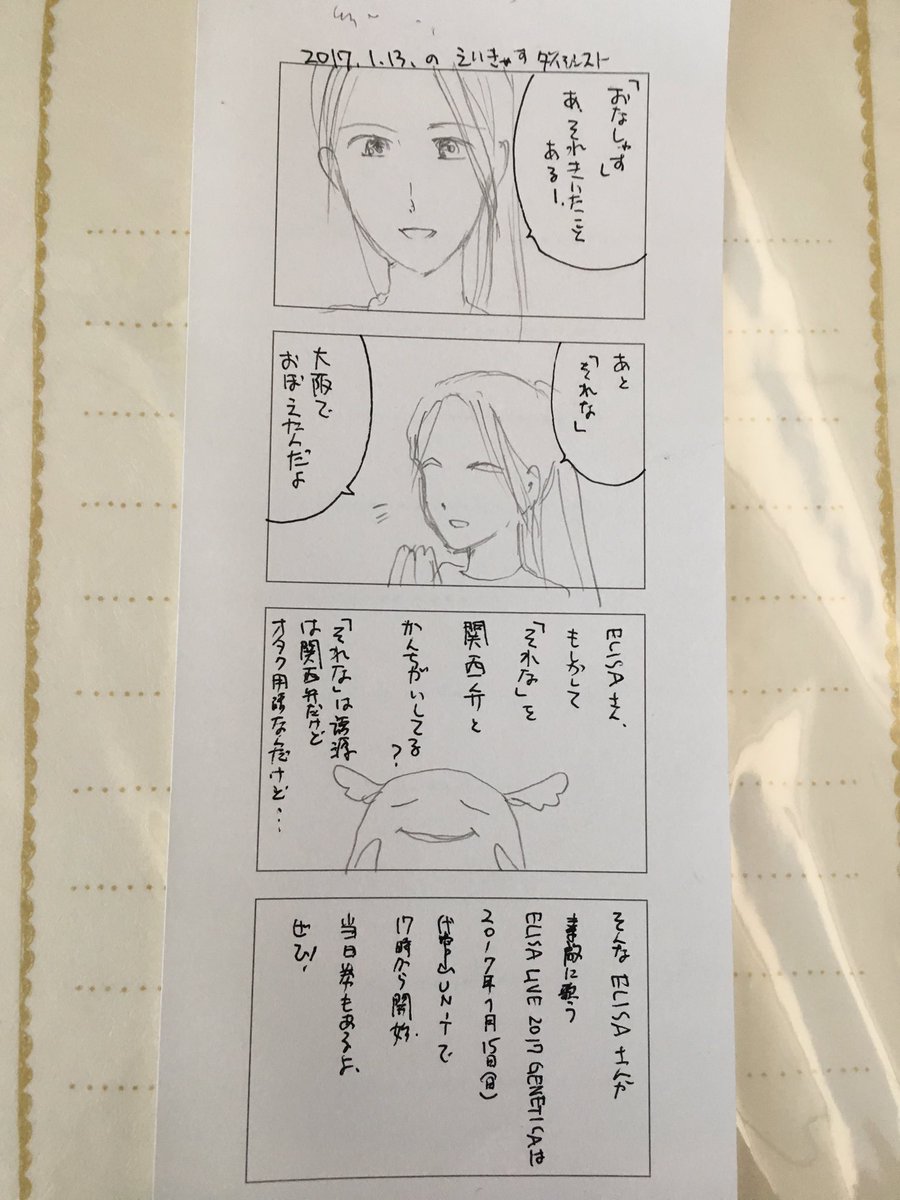 2017.1.13.の えいきゃす ダイジェスト
「おなしゃす」
あ、それきいたこと
あるー、
あと
「それな」
大阪で
おぼえたんだよ
ELISAさん、
もしかして
「それな」を
関西弁と
かんちがいしてる
?
「それな」は語源
は関西弁だけど
オタク用語なんだけど…
そんなELISAさんが
素敵に歌う
ELISA LIVE 2017 GENETICAは
2017年1月15日(日)
代官山UNITで
17時から開始
当日券もあるよ、
ぜひ!